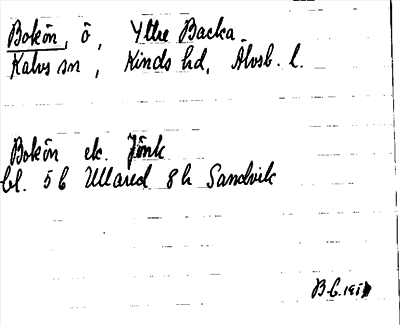 Bokön, ö, Yttre Backa
Kalvs sn, Kinds hd, Älvsb. l.
Bokön ek.
bl. 5b Ullared 8h Sandvik